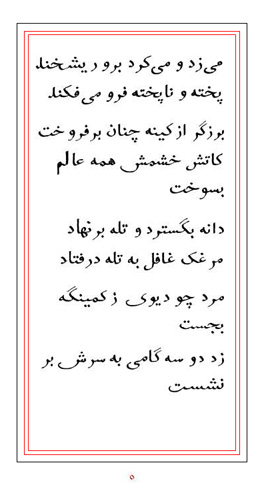 می‌زد و می‌کرد برو ریشخند
پخته و ناپخته فرو می فکند
برزگر از کینه چنان برفروخت
کاتش خشمش همه عالم
بسوخت
دانه بگسترد و تله برنهاد
مرغک غافل به تله درفتاد
مرد چو دیوی ز کمینگه
بجست
زد دو سه گامی به سرش بر
نشست
۵